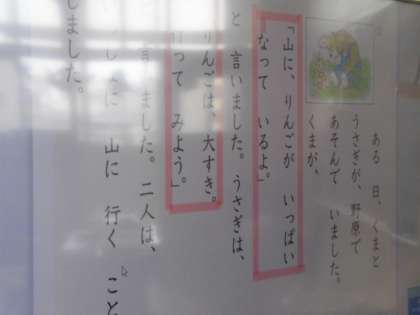 ある 日、くまと
うさぎが、野原で
あそんで いました。
くまが、
「山に、りんごが いっぱい
なって いるよ。」
と 言いました。うさぎは、
りんごは、大すき。
って みよう。」
言いました。二人は、
に 山に 行く こと
しました。